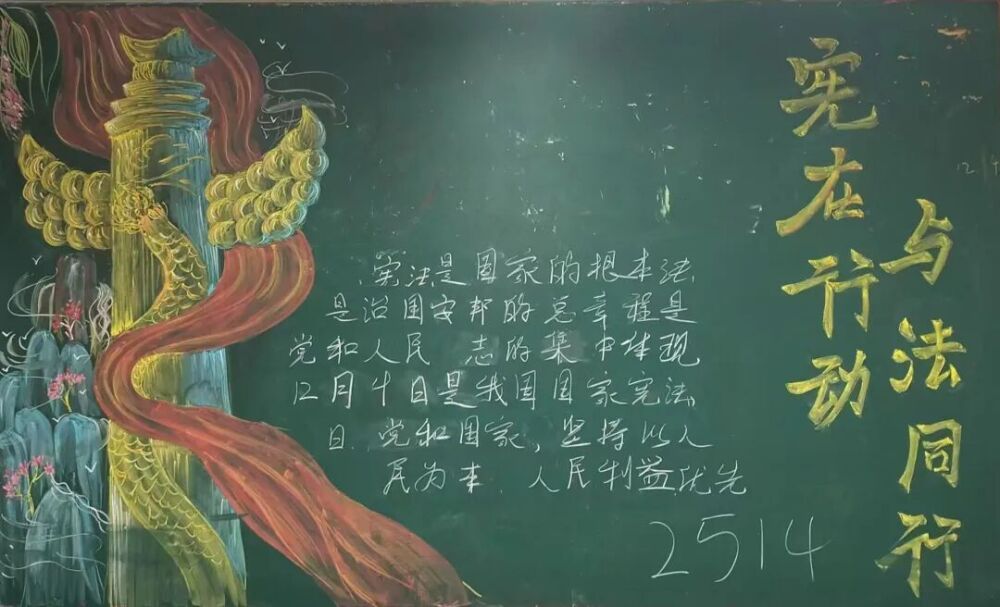 宪在行动
与法同行
宪法是国家的根本法
是治国安邦的总章程是
党和人民 志的集中体现
12月4日是我国国家宪法
日.党和国家,坚持以人
民为本.人民利益优先
2514